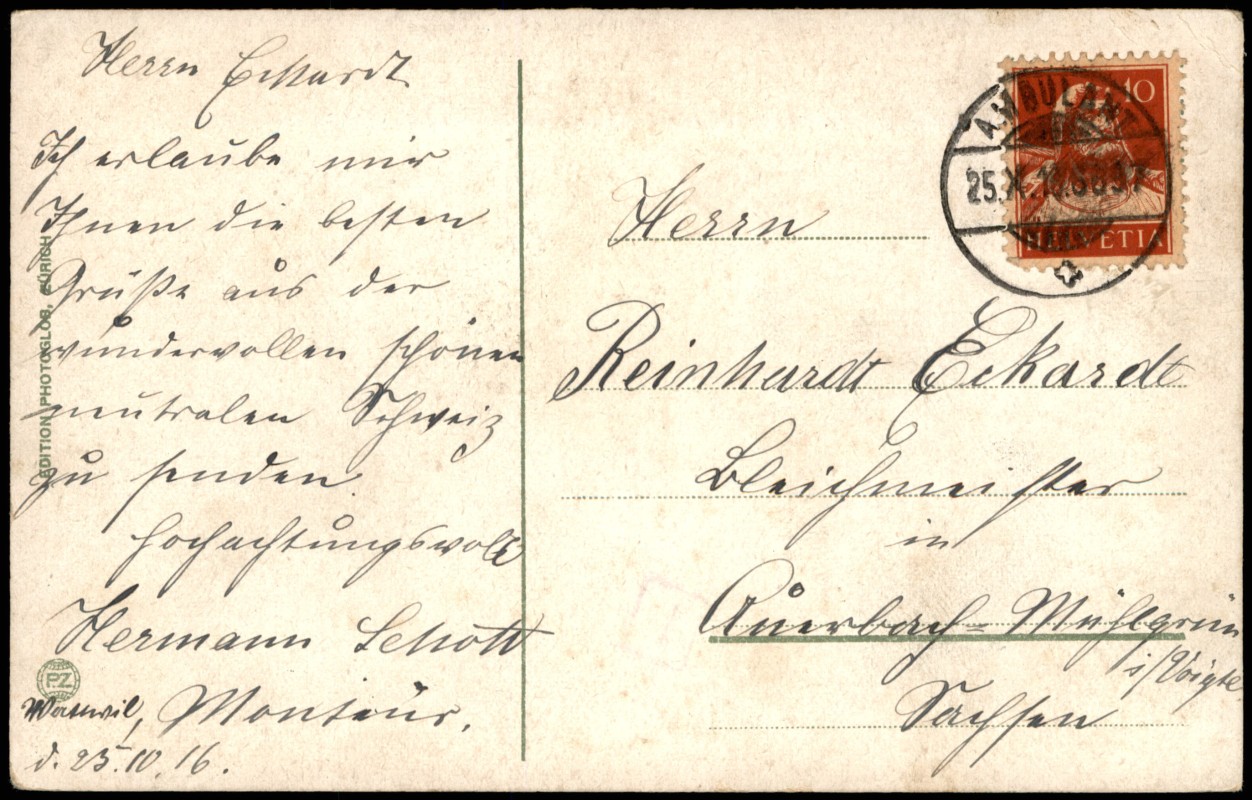 Herrn Eckardt
Ich erlaube mir
Ihnen die besten
Grüße aus der
wundervollen schönen
neutralen Schweiz
zu senden.
Hochachtungsvoll
Hermann Schott
Monteur.
Wattwil,
d. 25.10.16.
EDITION PHOTOGLOB, ZÜRICH
PZ
AMBULANT
25.X.16.
10
HELVETIA
Herrn
Reinhardt Eckardt
Bleichmeister
in
Auerbach-Mühlgrün
i/Voigtl
Sachsen